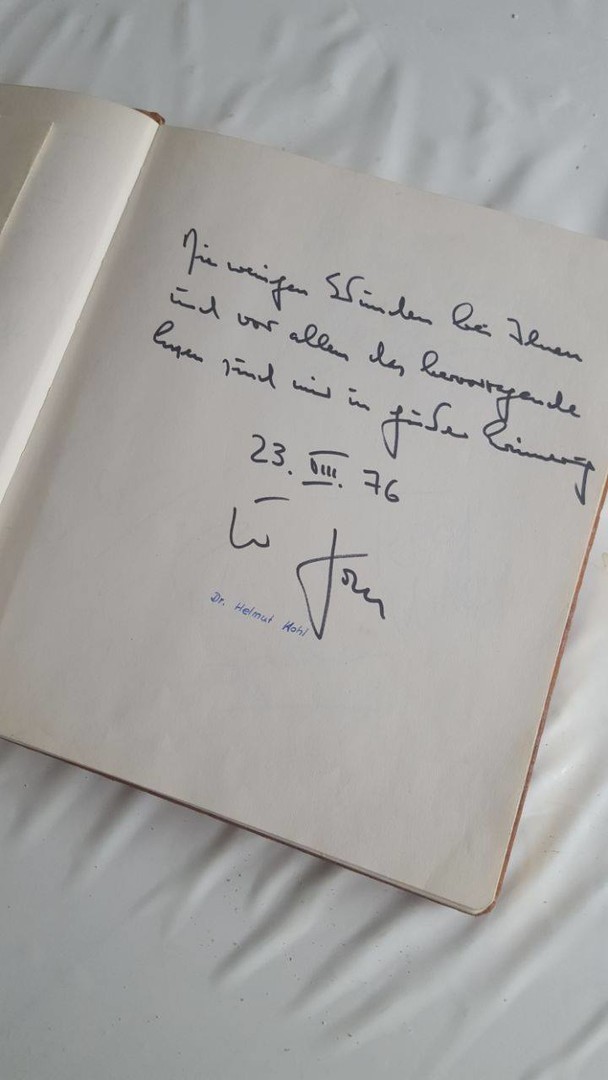 Die wenigen Stunden bei Ihnen
und vor allem das hervorragende
Essen sind mir in guter Erinnerung
23. VIII. 76
Ihr Kohl
Dr. Helmut Kohl